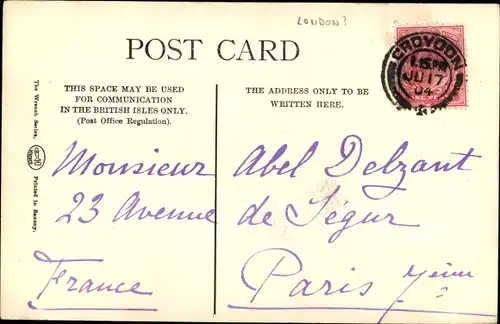 LONDON?
POST CARD
CROYDON
1.15 PM
JU 17
04
THIS SPACE MAY BE USED
FOR COMMUNICATION
IN THE BRITISH ISLES ONLY.
(Post Office Regulation).
THE ADDRESS ONLY TO BE
WRITTEN HERE.
The Wrench Series.
Printed in Saxony.
Monsieur Abel Delzant
23 Avenue de Ségur
France Paris 7ème